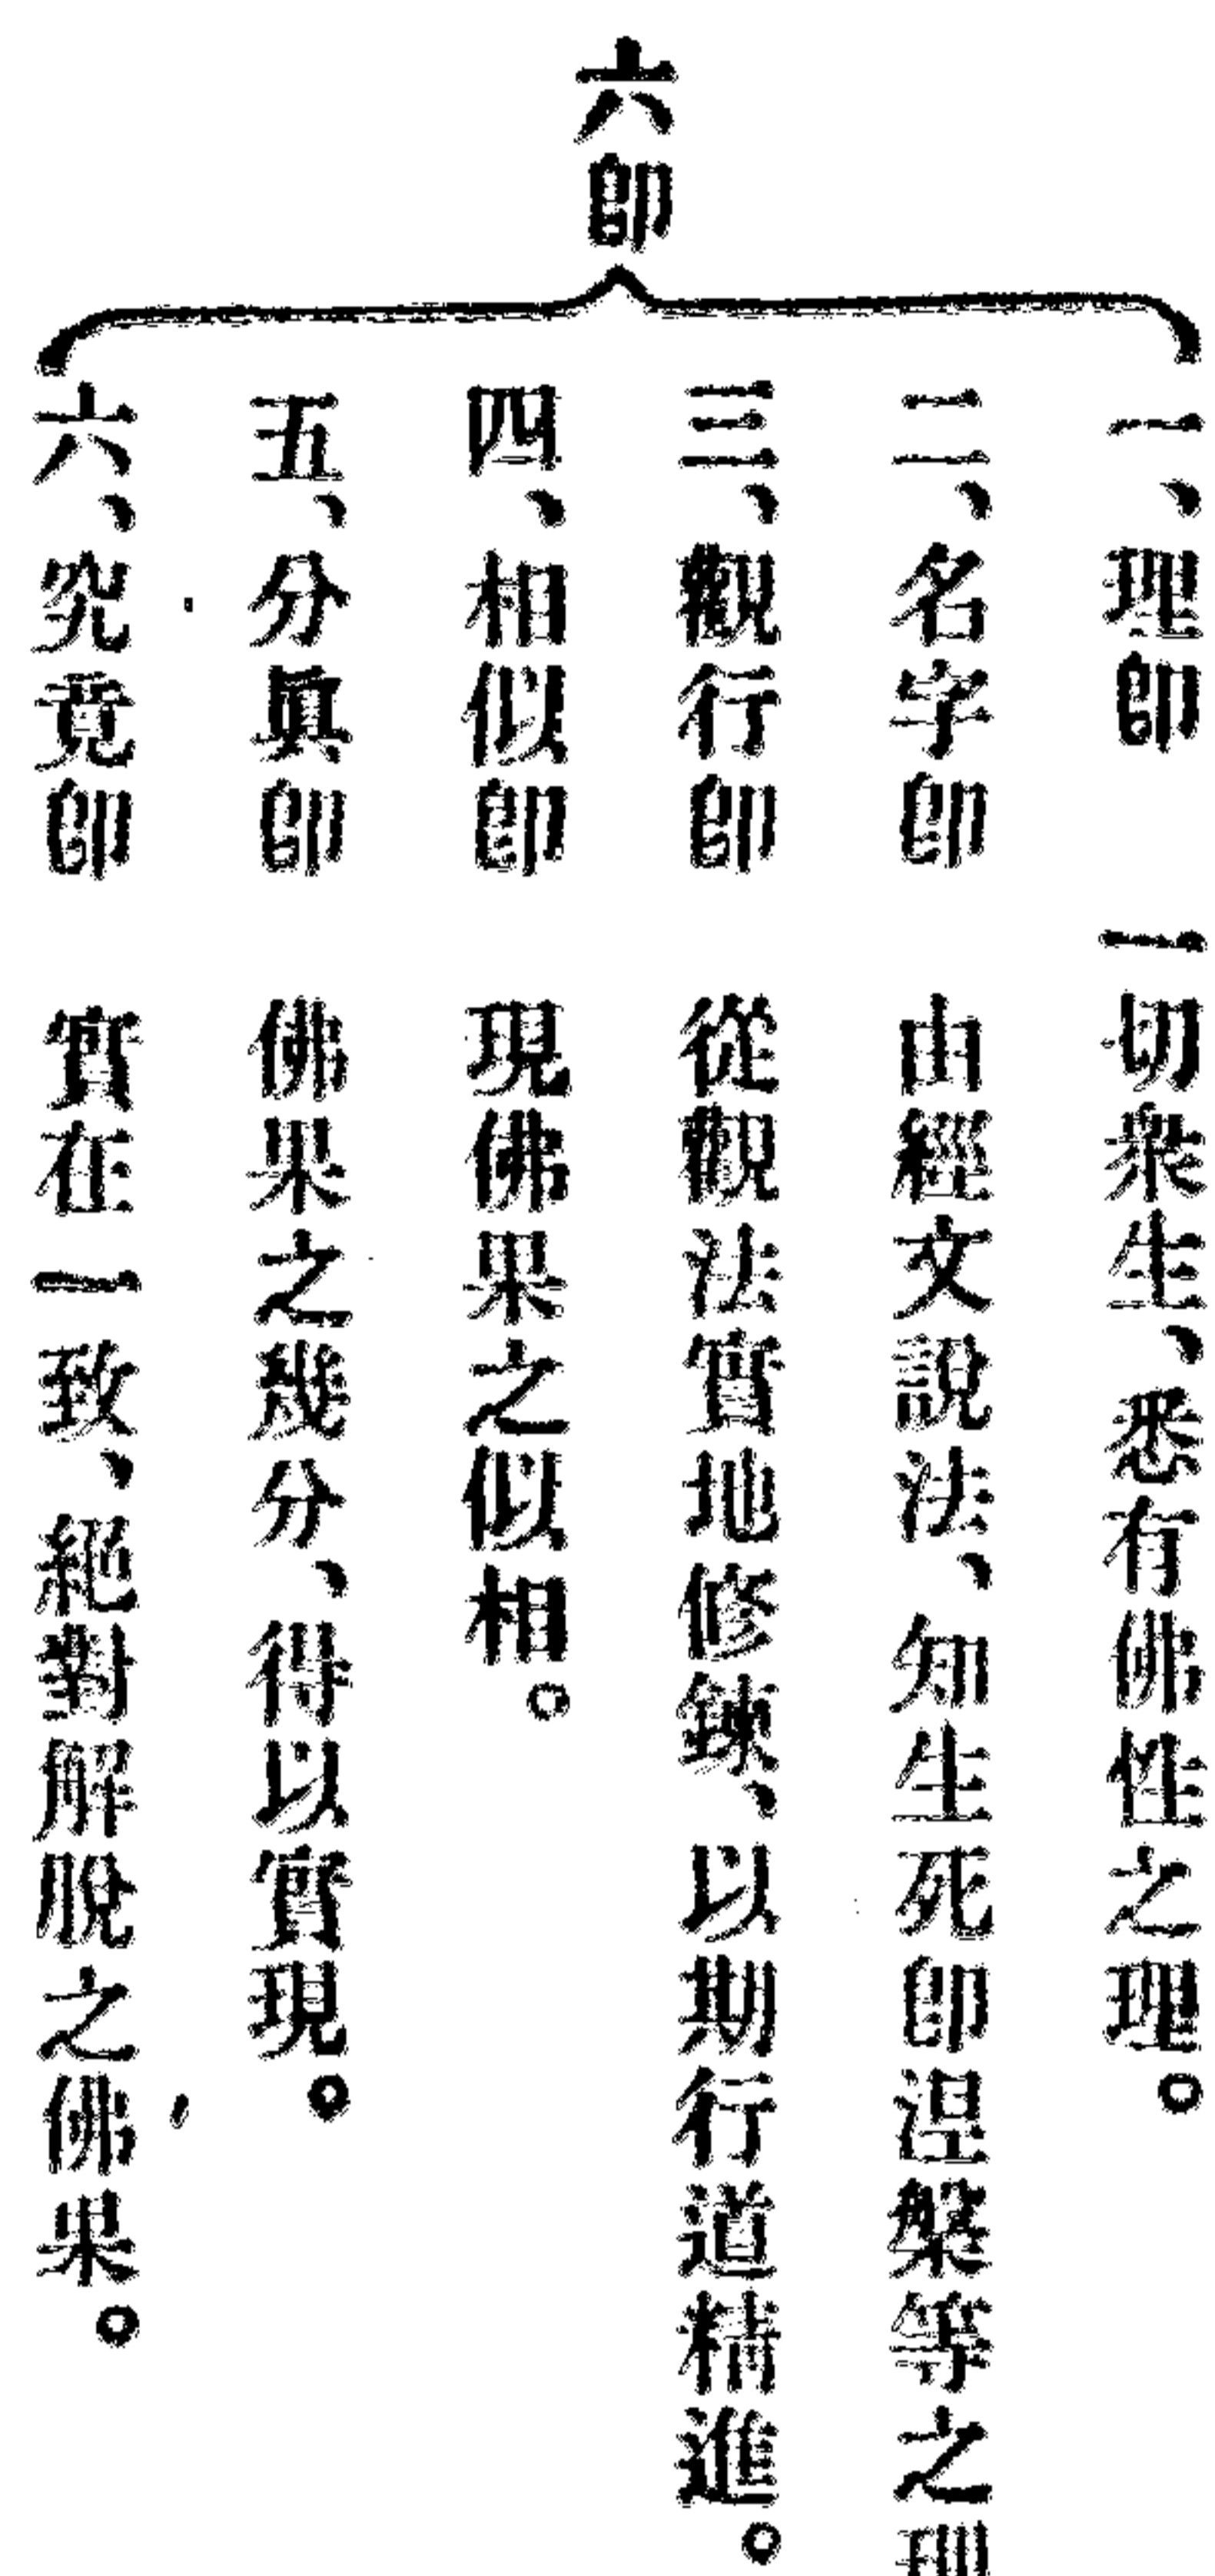 六卽
一、理卽 一切衆生、悉有佛性之理。
二、名字卽 由經文說法、知生死卽涅槃等之理
三、觀行卽 從觀法實地修鍊、以期行道精進。
四、相似卽 現佛果之似相。
五、分眞卽 佛果之幾分、得以實現。
六、究竟卽 實在一致、絕對解脫之佛果。